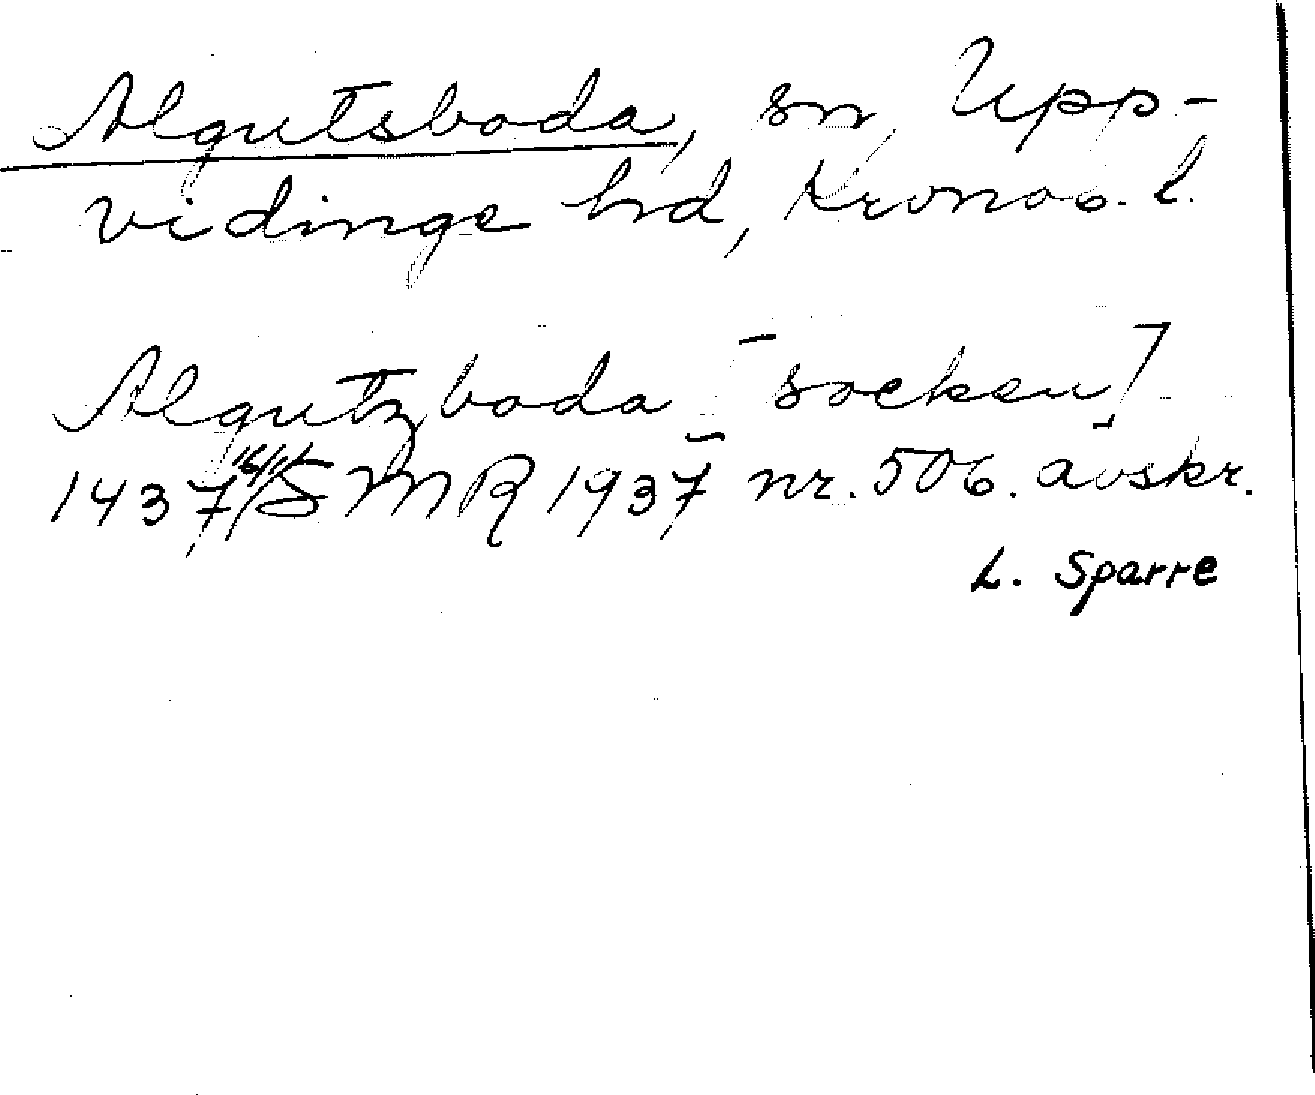 Algutsboda, sn, Upp-
vidinge hd, Kronob. l.
Algutzboda [socken]
1437 16/11 SMR 1937 nr. 506. avskr.
L. Sparre